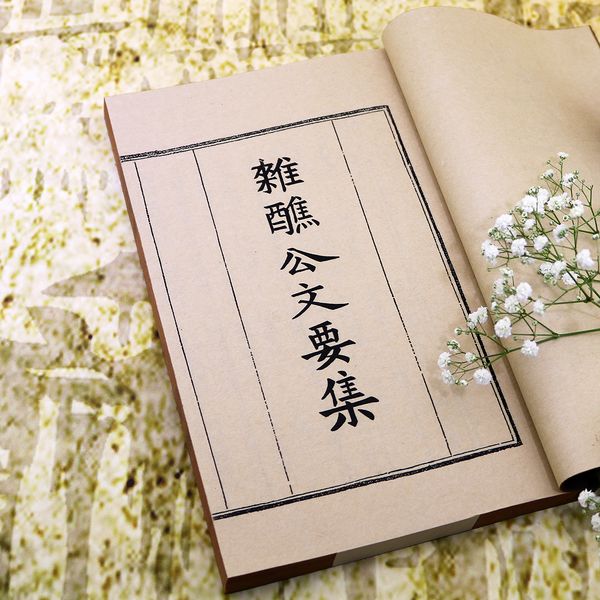 雜醮公文要集